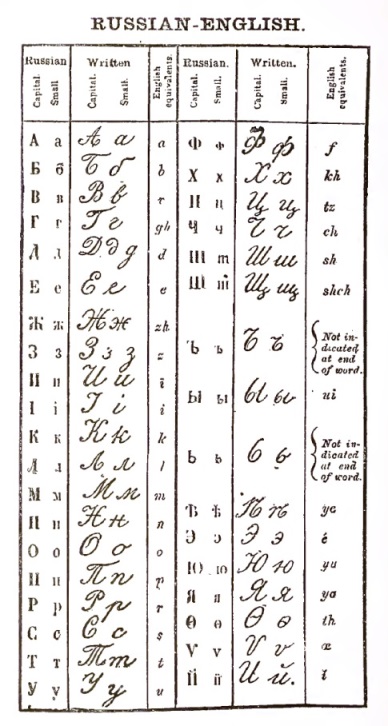 RUSSIAN-ENGLISH.
Russian Written English equivalents. Russian. Written. English equivalents.
Capital. Small Capital. Small. Capital. Small. Capital. Small.
А а А а a Ф ф Ф ф f
Б б Б б b Х х Х х kh
В в В в Ц ц Ц ц tz
Г г Г г gh Ч ч Ч ч ch
Д д Д д д d Ш ш Ш ш sh
Е е Е е e Щ щ Щ щ shch
Ж ж Ж ж zh
З з З з з z Ъ ъ Ъ ъ Not indicated at end of word.
И и И и
І і І і i Ы ы Ы ы ui
К к К к k
Л л Л л l Ь ь Ь ь Not indicated at end of word.
М м М м m
Н н Н н n Ѣ ѣ Ѣ ѣ ye
О о О о o Э э Э э é
П п П п p Ю ю Ю ю yu
Р р Р р r Я я Я я ya
С с С с s Ѳ ѳ Ѳ ѳ th
Т т Т т t Ѵ ѵ Ѵ ѵ
У у У у u Й й И й.